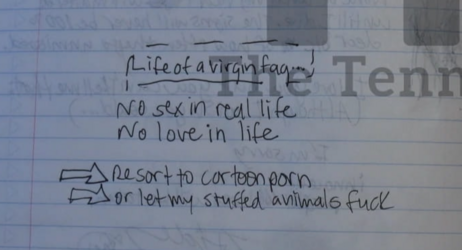 Life of a virgin fag...
The Tenn
No sex in real life
No love in life
Resort to cartoon porn
or let my stuffed animals fuck